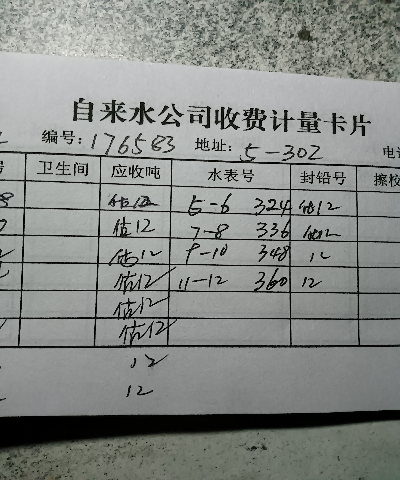 自来水公司收费计量卡片
编号:176583 地址:5-302 电
卫生间 应收吨 水表号 封铅号 擦
估12 5-6 324 估12
估12 7-8 336 估12
估12 9-10 348 12
估12 11-12 360 12
估12
估12
12
12